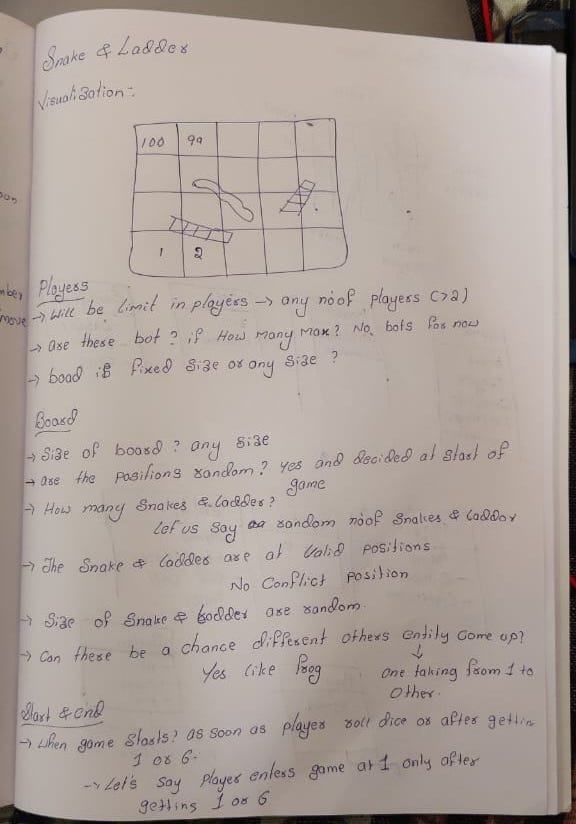 Snake & Ladder
Visualization:-
100 99
1 2
Players
→ Will be limit in players → any no of players (>2)
→ are these bot ? if How many max? No bots for now
→ boad is fixed size or any size ?
Board
→ Size of board ? any size
→ are the positions random? yes and decided at start of
game
→ How many snakes & ladder?
Let us say random no of snakes & laddor
→ The Snake & ladder are at Valid positions
No Conflict position
→ Size of Snake & ladder are random.
→ Can there be a chance different others entity come up?
Yes like frog
one taking from 1 to
other.
Start & end
→ when game starts? as soon as player roll dice or after gettin
1 or 6.
→ Let's say player enters game at 1 only after
getting 1 or 6